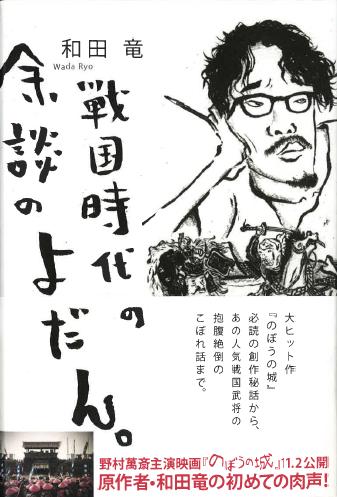 和田 竜
Wada Ryo
戦国時代の
余談のよだん。
大ヒット作
『のぼうの城』
必読の創作秘話から、
あの人気戦国武将の
抱腹絶倒の
こぼれ話まで。
野村萬斎主演映画『のぼうの城』11.2公開
原作者・和田竜の初めての肉声!